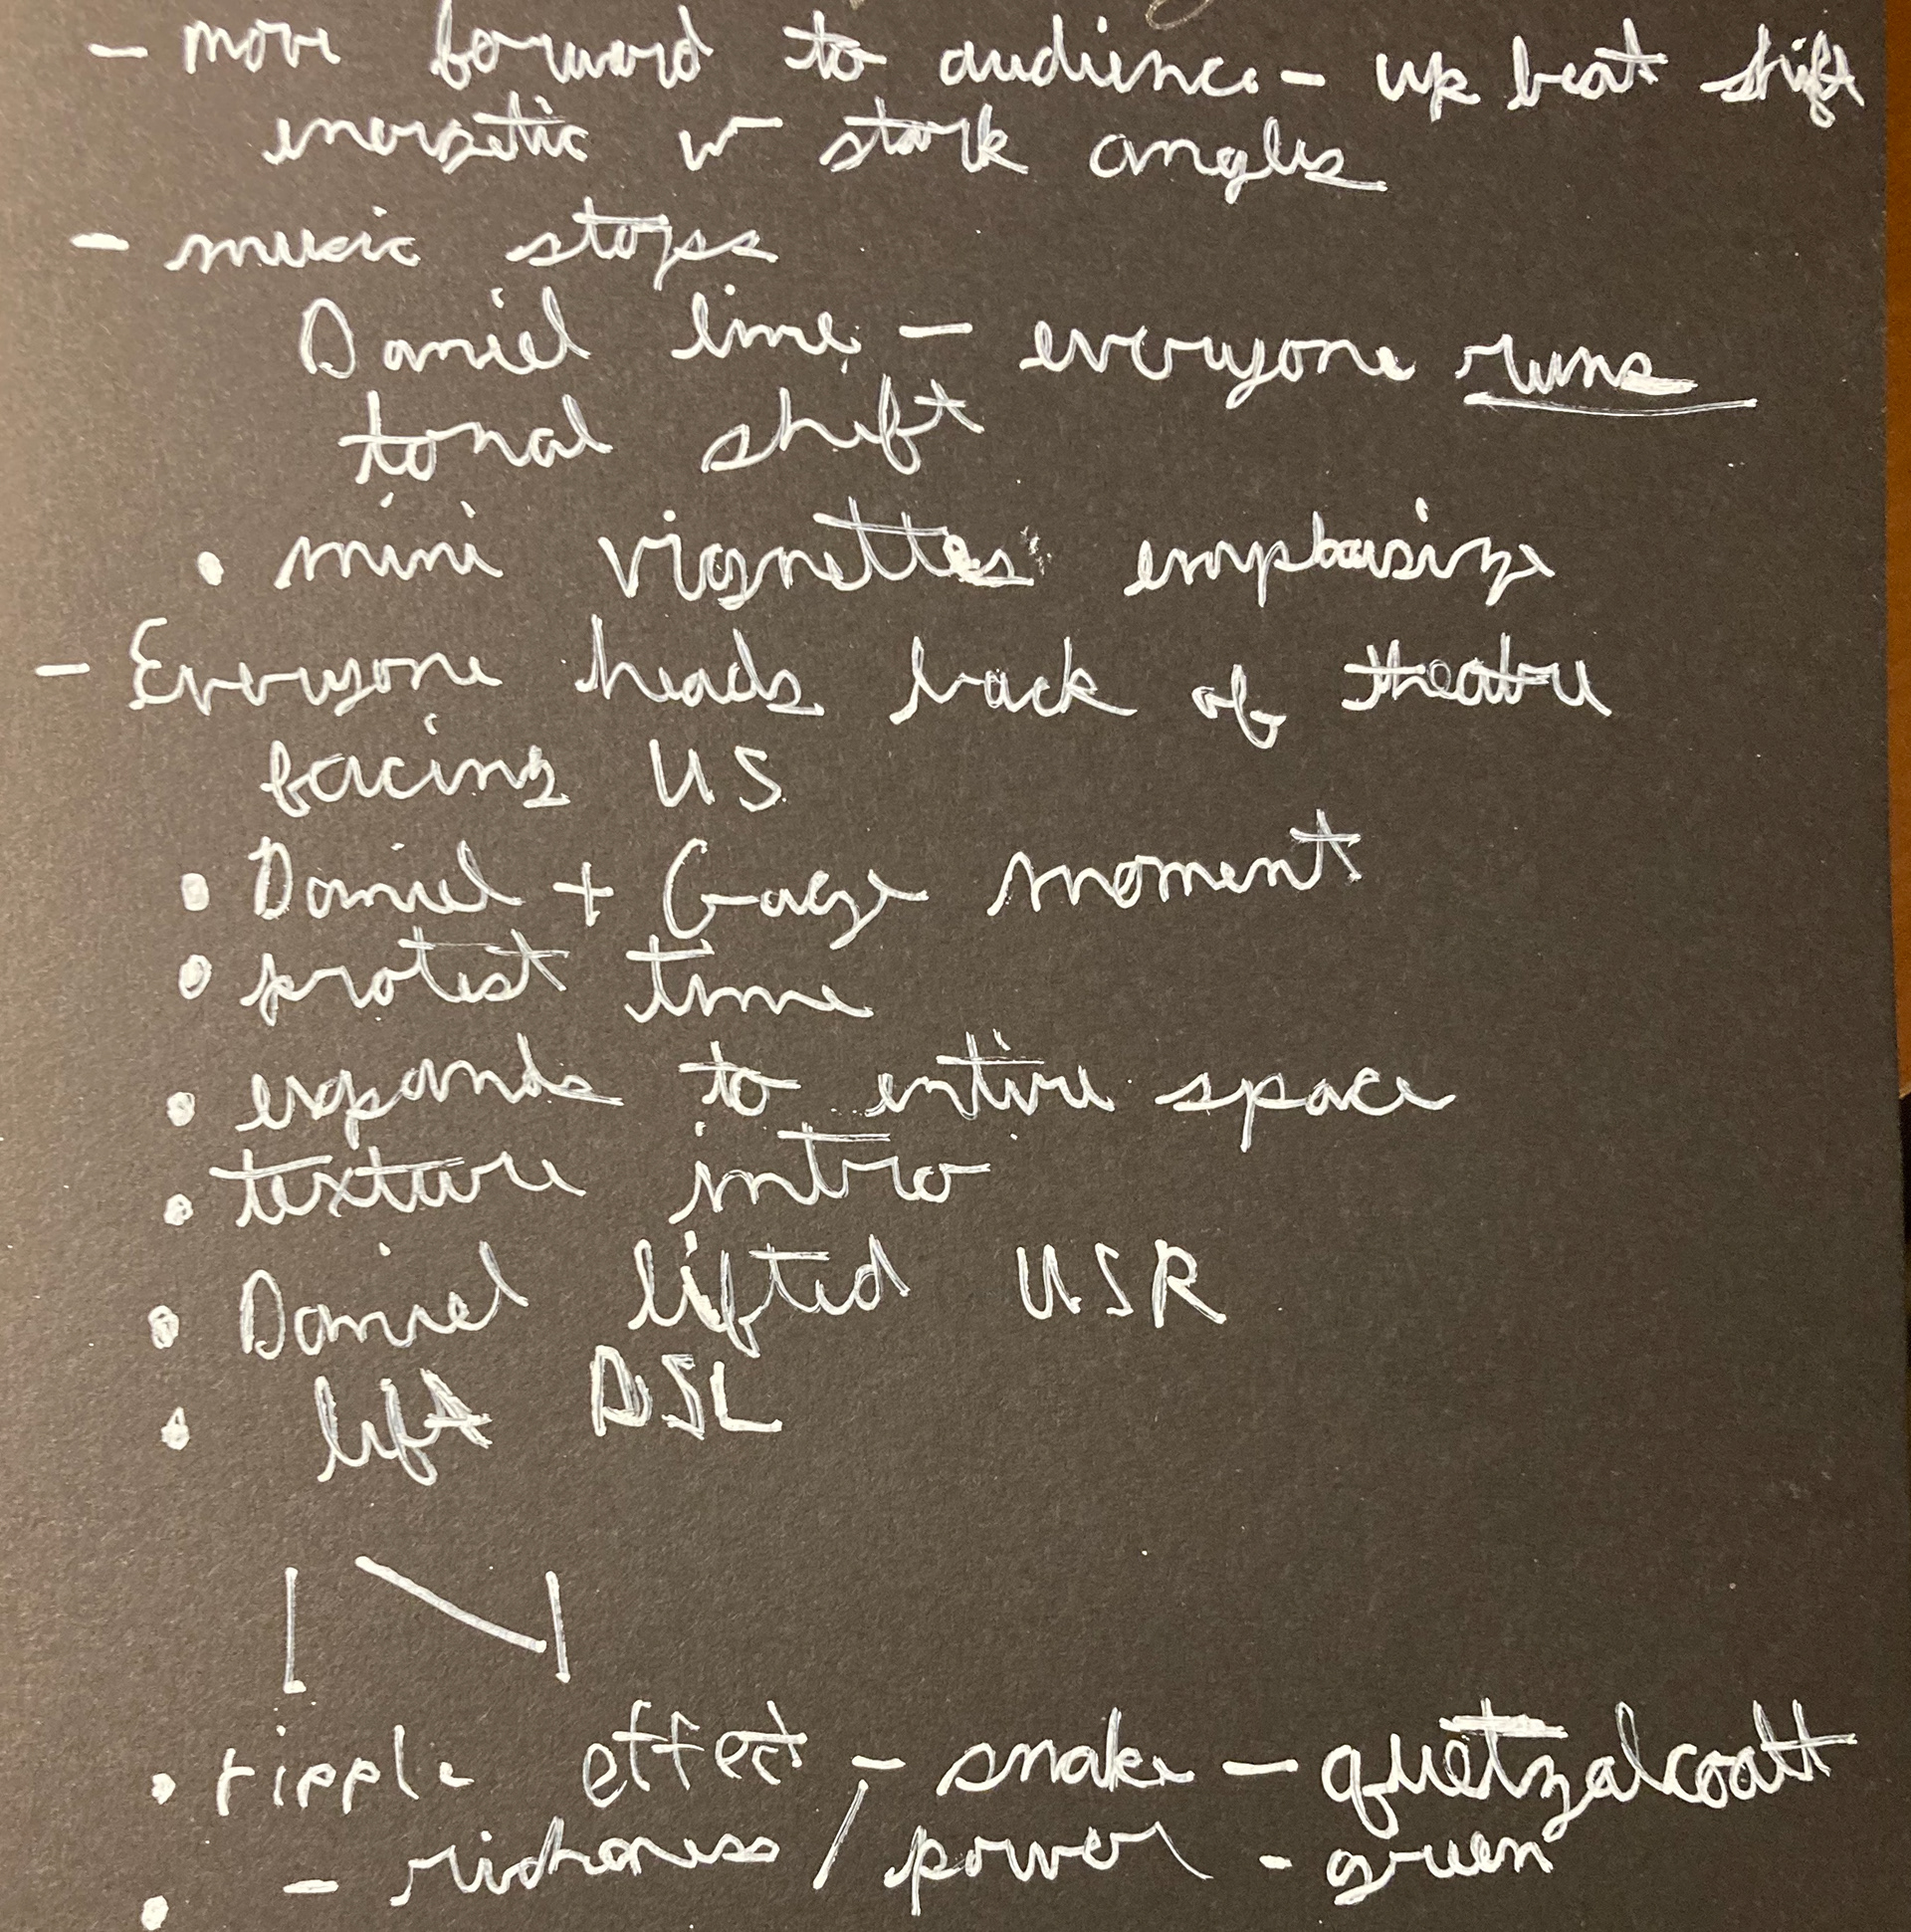 - move forward to audience - up beat shift
energetic w stark angles
- music stops
Daniel line - everyone runs
tonal shift
• mini vignettes emphasize
- Everyone heads back of theatre
facing US
• Daniel + Gage moment
• protest time
• expands to entire space
• texture intro
• Daniel lifted USR
• lift DSL
• ripple effect - snake - quetzalcoatl
- richness / power - green
•